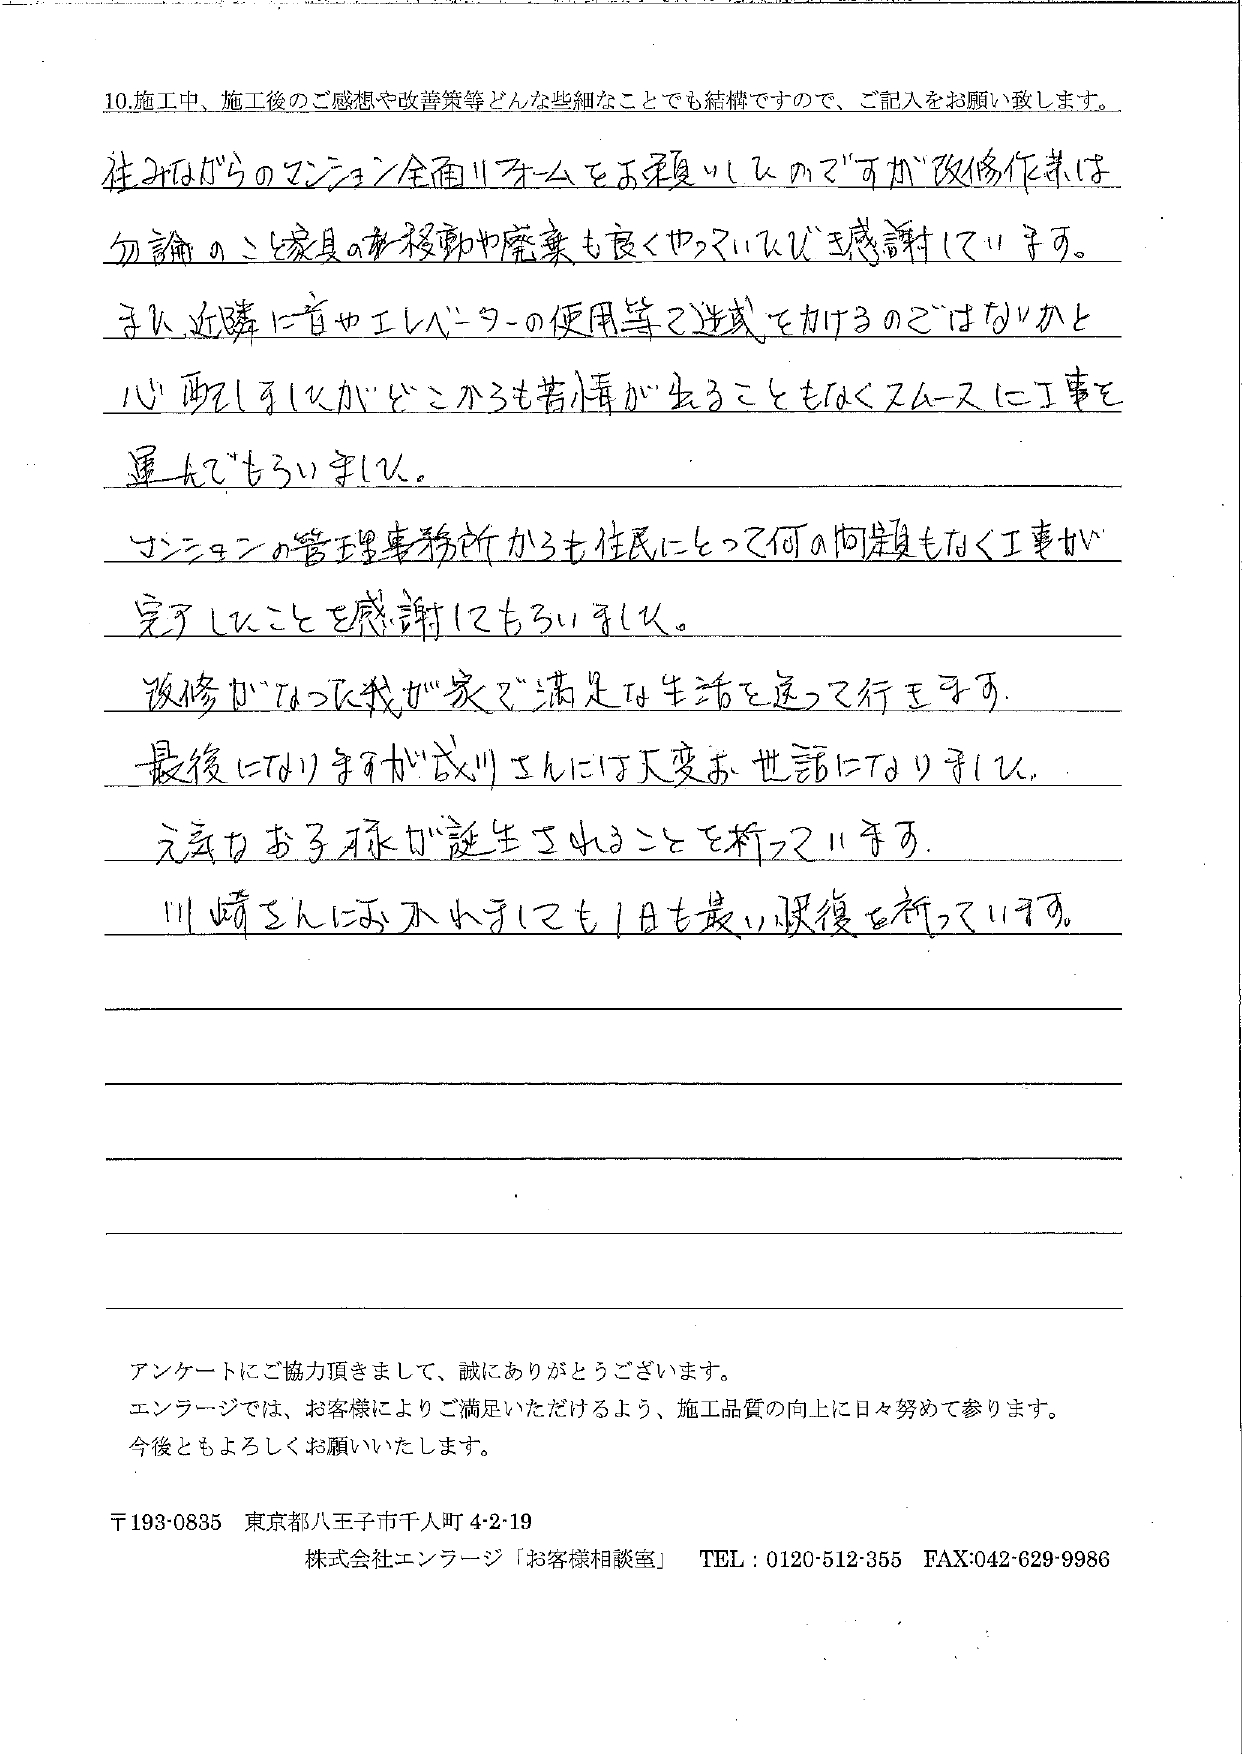 10.施工中、施工後のご感想や改善策等どんな些細なことでも結構ですので、ご記入をお願い致します。
住みながらのマンション全面リフォームをお願いしたのですが改修作業は
勿論のこと家具の移動や廃棄も良くやっていただき感謝しています。
また、近隣に音やエレベーターの使用等で迷惑をかけるのではないかと
心配しましたがどこからも苦情が出ることもなくスムースに工事を
運んでもらいました。
マンションの管理事務所からも住民にとって何の問題もなく工事が
完了したことを感謝してもらいました。
改修がなった我が家で満足な生活を送って行きます.
最後になりますが成川さんには大変お世話になりました.
元気なお子様が誕生されることを祈っています.
川崎さんにおかれましても1日も早い回復を祈っています。
アンケートにご協力頂きまして、誠にありがとうございます。
エンラージでは、お客様によりご満足いただけるよう、施工品質の向上に日々努めて参ります。
今後ともよろしくお願いいたします。
〒193-0835 東京都八王子市千人町 4-2-19
株式会社エンラージ「お客様相談室」 TEL : 0120-512-355 FAX:042-629-9986